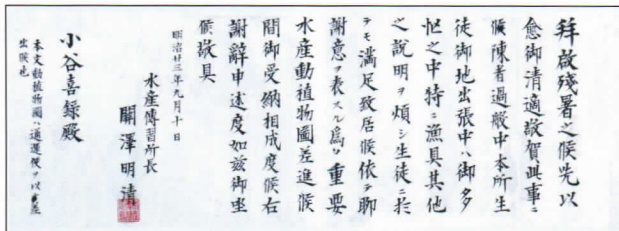 拜啓殘暑之候先以
愈御清適敬賀此事ニ
候陳者過般中本所生
徒御地出張中ハ御多
忙之中特ニ漁具其他
之説明ヲ煩シ生徒ニ於
テモ滿足致居候依テ聊
謝意ヲ表スル爲〆重要
水産動植物圖差進候
間御受納相成度候右
謝辭申述度如茲御坐
候敬具
明治廿三年九月十日
水産傳習所長
關澤明清
小谷喜録殿
本文動植物圖ハ通運便ヲ以差
出候也